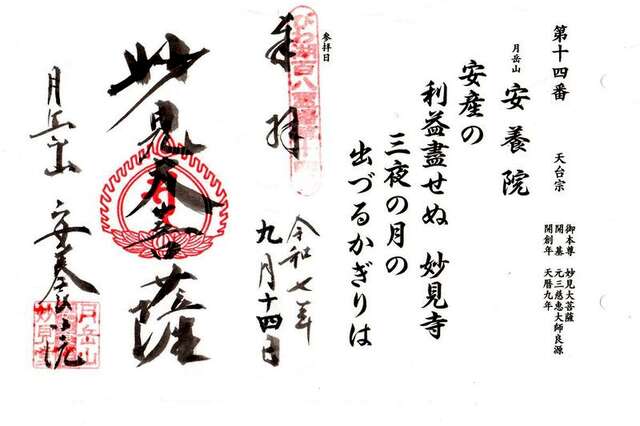 第十四番　天台宗
御本尊　妙見大菩薩
開基　元三慈恵大師良源
開創年　天暦九年
月岳山　安養院
安産の
利益盡せぬ　妙見寺
三夜の月の
出づるかぎりは
参拝日
奉拝
令和七年
九月十四日
妙見大菩薩
月岳山　安養院
月岳山
妙見堂